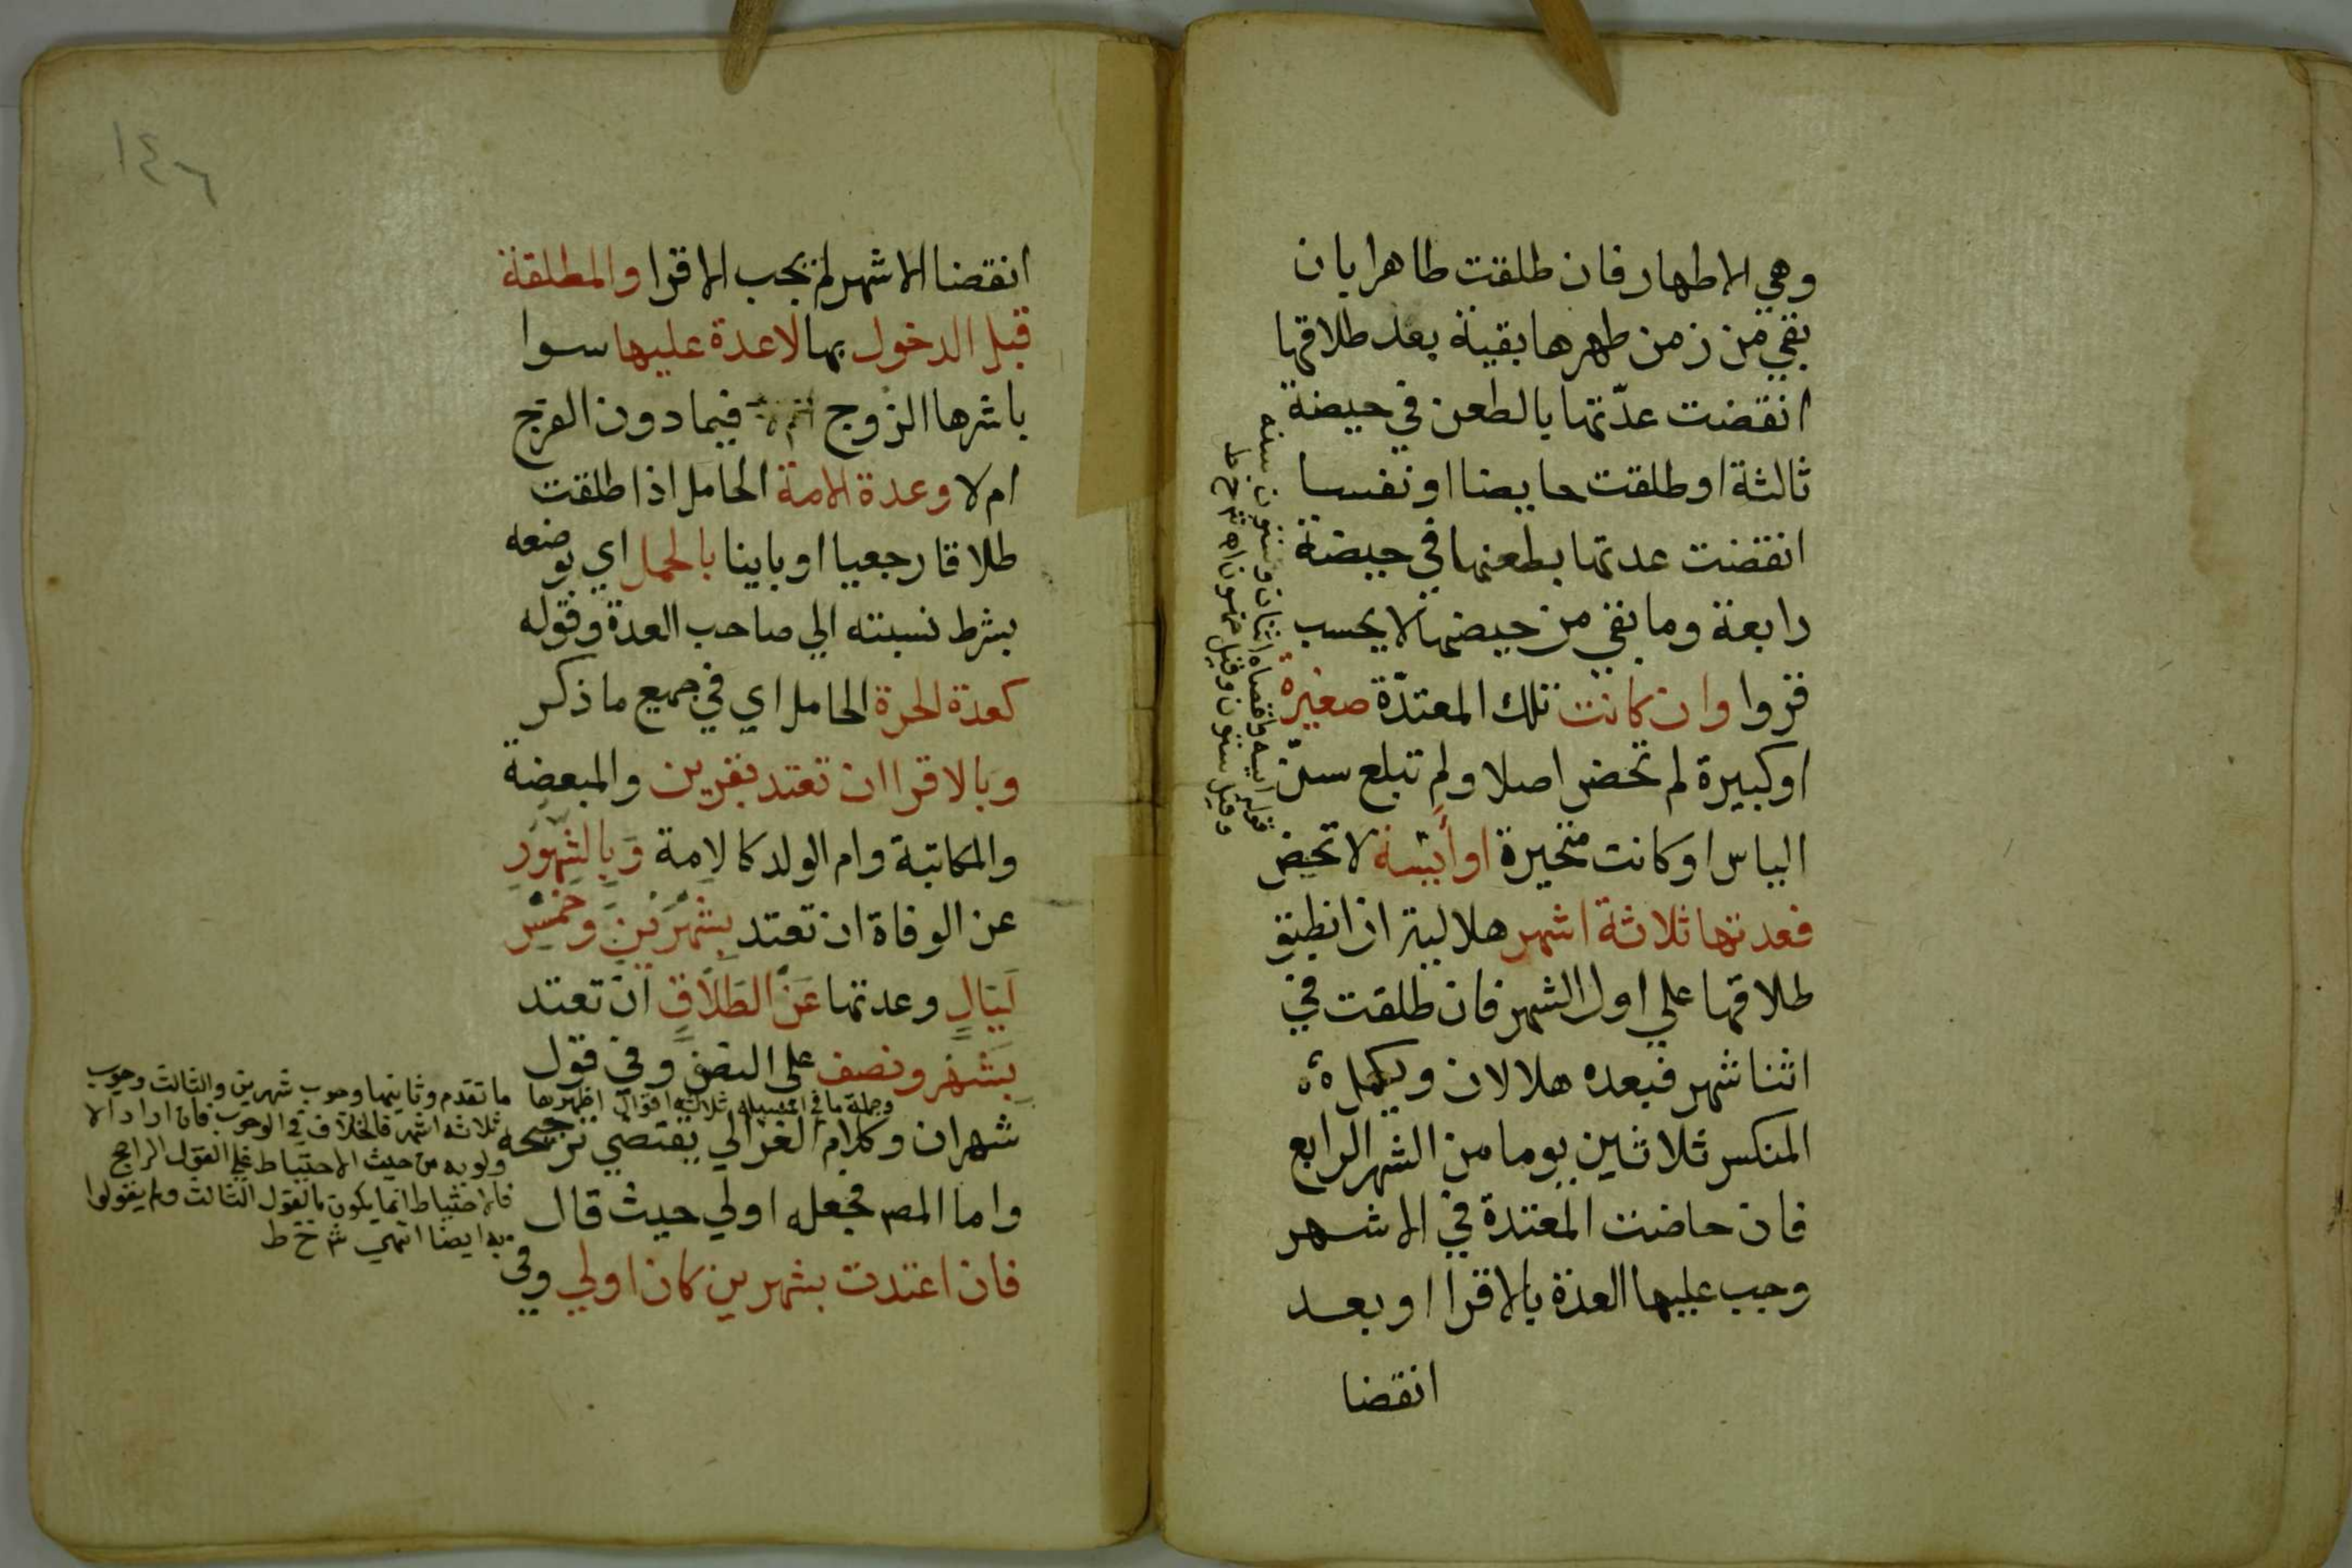 وهي الاطهار فان طلقت طاهرا بان
بقي من زمن طهرها بقية بعد طلاقها
انقضت عدّتها بالطعن في حيضة
ثالثة او طلقت حايضا او نفسا
انقضت عدتها بطعنها في حيضة
رابعة وما بقي من حيضها لا يحسب
قروا وان كانت تلك المعتدّة صغيرة
او كبيرة لم تحض اصلا ولم تبلغ سن
الياس او كانت متحيرة او أيسة لا تحيض
فعدتها ثلاثة اشهر هلالية ان انطبق
طلاقها علي اول الشهر فان طلقت في
اثنا شهر فبعده هلالان ويكمل
المنكسر ثلاثين يوما من الشهر الرابع
فان حاضت المعتدة في الاشهر
وجب عليها العدة بالاقرا او بعد
انقضا
قوله ايسه واقصاه اثنان وستون سنه
وقيل ستون وقيل خمسون اه شرح خط
١٤٦
انقضا الاشهر لم يجب الاقرا والمطلقة
قبل الدخول بها لا عدة عليها سوا
باشرها الزوج فيما دون الفرج
ام لا وعدة الامة الحامل اذا طلقت
طلاقا رجعيا او باينا بالحمل اي بوضعه
بشرط نسبته الي صاحب العدة وقوله
كعدة الحرة الحامل اي في جميع ما ذكر
وبالاقرا ان تعتد بقرين والمبعضة
والمكاتبة وام الولد كالامة وَبِالشُّهُورِ
عن الوفاة ان تعتد بِشَهْرَيْنِ وَخَمْسِ
لَيَالٍ وعدتها عَنْ الطَّلَاقِ ان تعتد
بِشَهْرٍ ونصف علي النصف وفي قول
شهران وكلام الغزالي يقتضي ترجيحه
واما المص فجعله اولي حيث قال
فان اعتدت بشهرين كان اولي وفي
وجملة ما في المسيله ثلاثة اقوال اظهرها
ما تقدم وثانيها وجوب شهرين والثالث وجوب
ثلاثه اشهر فالخلاف في الوجوب فان اراد الا
ولويه من حيث الاحتياط علي القول الراجح
فالاحتياط انما يكون بالقول الثالث ولم يقولوا
به ايضا انتهي ش خ ط